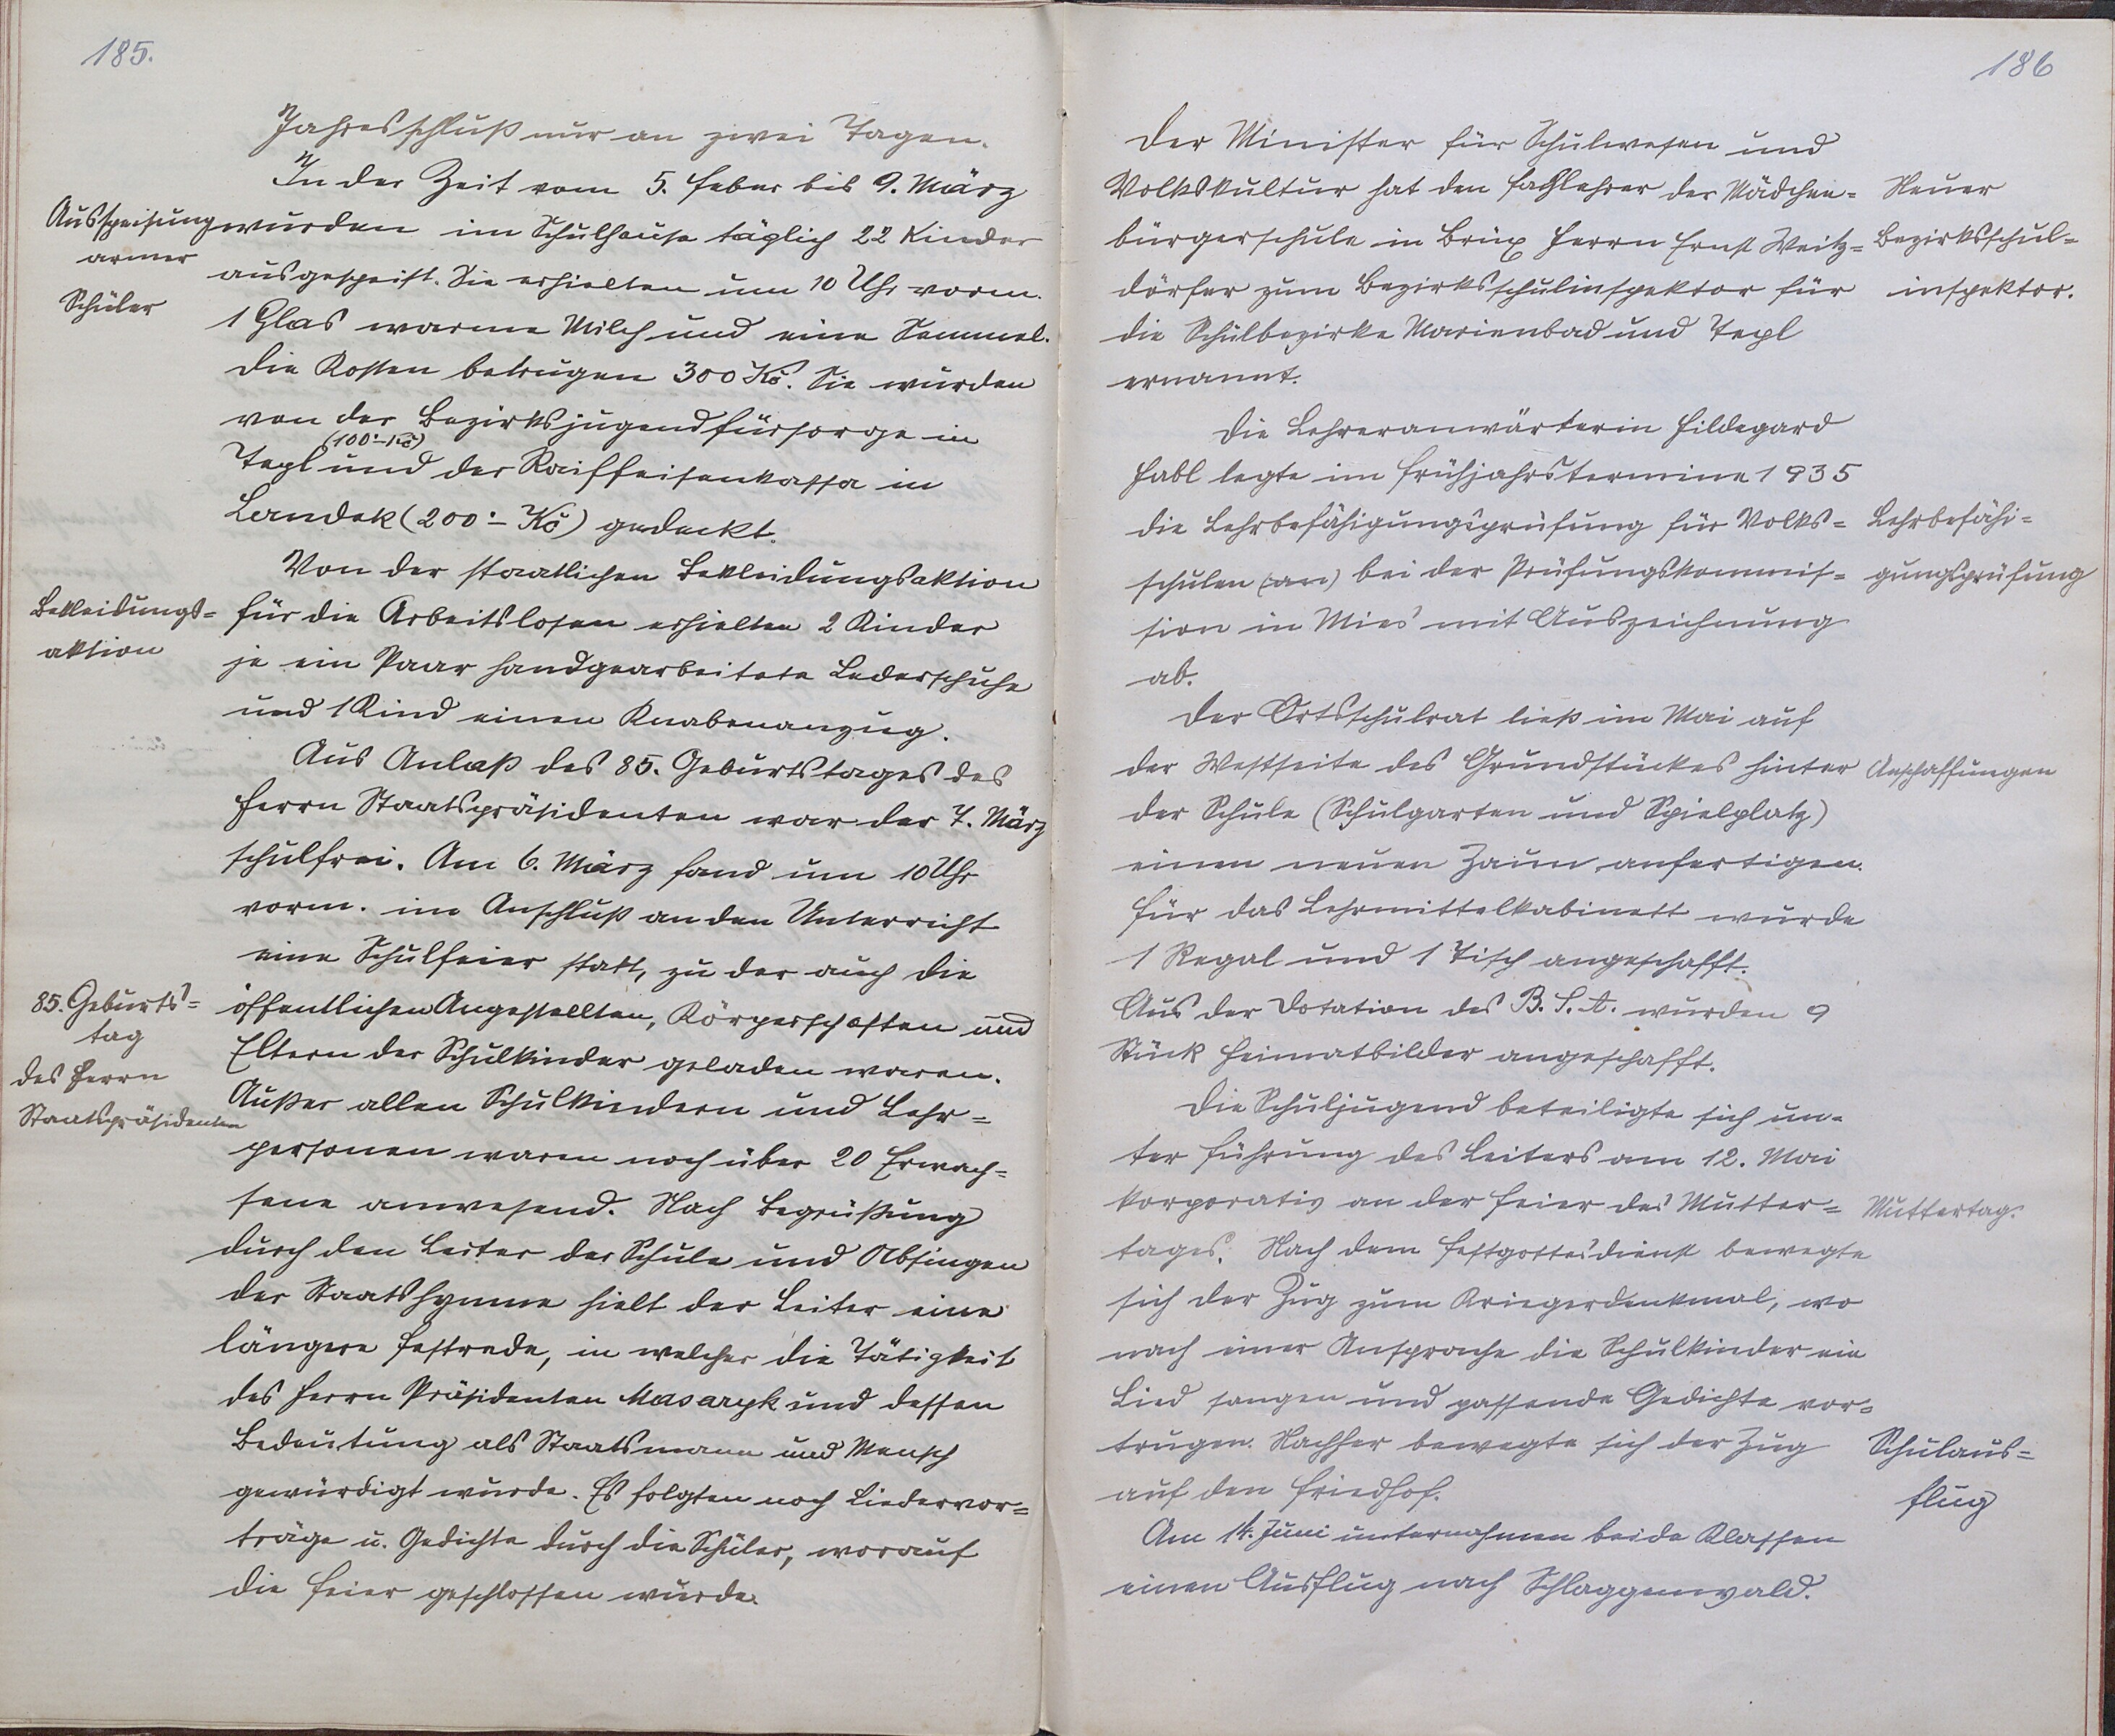 185.
Jahresschluß nur an zwei Tagen.
In der Zeit vom 5. Feber bis 9. März
Ausspeisung
armer
Schüler
wurden im Schulhause täglich 22 Kinder
ausgespeist. Sie erhielten um 10 Uhr vorm.
1 Glas warme Milch und eine Semmel.
Die Kosten betrugen 300 Kč. Sie wurden
von der Bezirksjugendfürsorge in
(100·- Kč)
Tepl und der Raiffeisenkassa in
Landek (200·- Kč) gedeckt.
Von der staatlichen Bekleidungsaktion
Bekleidungs=
aktion
für die Arbeitslosen erhielten 2 Kinder
je ein Paar handgearbeitete Lederschuhe
und 1 Kind einen Knabenanzug.
Aus Anlaß des 85. Geburtstages des
Herrn Staatspräsidenten war der 7. März
schulfrei. Am 6. März fand um 10 Uhr
vorm. im Anschluß an den Unterricht
eine Schulfeier statt, zu der auch die
85. Geburts=
tag
des Herrn
Staatspräsidenten
öffentlichen Angestellten, Körperschaften und
Eltern der Schulkinder geladen waren.
Außer allen Schulkindern und Lehr=
personen waren noch über 20 Erwach=
sene anwesend. Nach Begrüßung
durch den Leiter der Schule und Absingen
der Staatshymne hielt der Leiter eine
längere Festrede, in welcher die Tätigkeit
des Herrn Präsidenten Masaryk und dessen
Bedeutung als Staatsmann und Mensch
gewürdigt wurde. Es folgten noch Liedervor=
träge u. Gedichte durch die Schüler, worauf
die Feier geschlossen wurde.
186
Der Minister für Schulwesen und
Volkskultur hat den Fachlehrer der Mädchen=
bürgerschule in Brüx Herrn Ernst Weitz=
dörfer zum Bezirksschulinspektor für
die Schulbezirke Marienbad und Tepl
ernannt.
Neuer
Bezirksschul=
inspektor.
Die Lehreranwärterin Hildegard
Habl legte im Frühjahrstermine 1935
die Lehrbefähigungsprüfung für Volks=
schulen (an) bei der Prüfungskommis=
sion in Mies mit Auszeichnung
ab.
Lehrbefähi=
gungsprüfung
Der Ortsschulrat ließ im Mai auf
der Westseite des Grundstückes hinter
der Schule (Schulgarten und Spielplatz)
einen neuen Zaun anfertigen.
Für das Lehrmittelkabinett wurde
1 Regal und 1 Tisch angeschafft.
Aus der Dotation des B. S. A. wurden 9
Stück Heimatbilder angeschafft.
Anschaffungen
Die Schuljugend beteiligte sich un=
ter Führung des Leiters am 12. Mai
korporativ an der Feier des Mutter=
tages. Nach dem Festgottesdienst bewegte
sich der Zug zum Kriegerdenkmal, wo
nach einer Ansprache die Schulkinder ein
Lied sangen und passende Gedichte vor=
trugen. Nachher bewegte sich der Zug
auf den Friedhof.
Muttertag.
Am 14. Juni unternahmen beide Klassen
einen Ausflug nach Schlaggenwald.
Schulaus=
flug